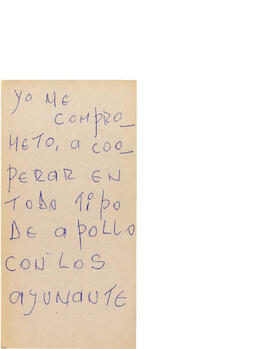 YO ME
COMPRO_
METO, A COO_
PERAR EN
TODO TIPO
DE APOLLO
CON LOS
AYUNANTE